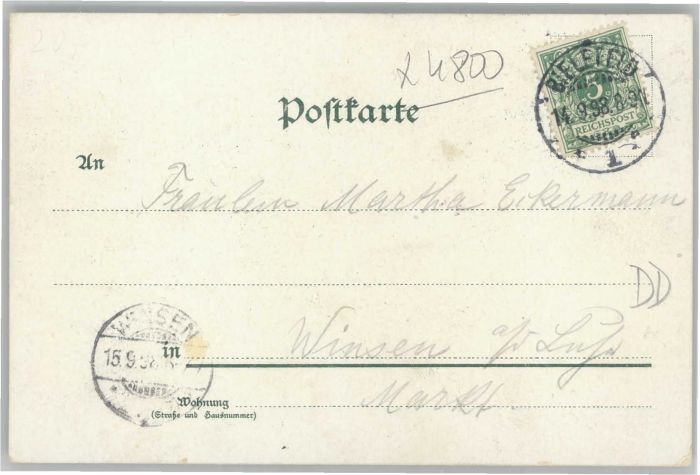 x 4800
BIELEFELD
14.9.98.8-9N
1
5
REICHSPOST
Postkarte
An
Fräulein Martha Eckermann
DD
WINSEN
15.9.98
in
Winsen a/d Luhe
Markt.
Wohnung
(Straße und Hausnummer)